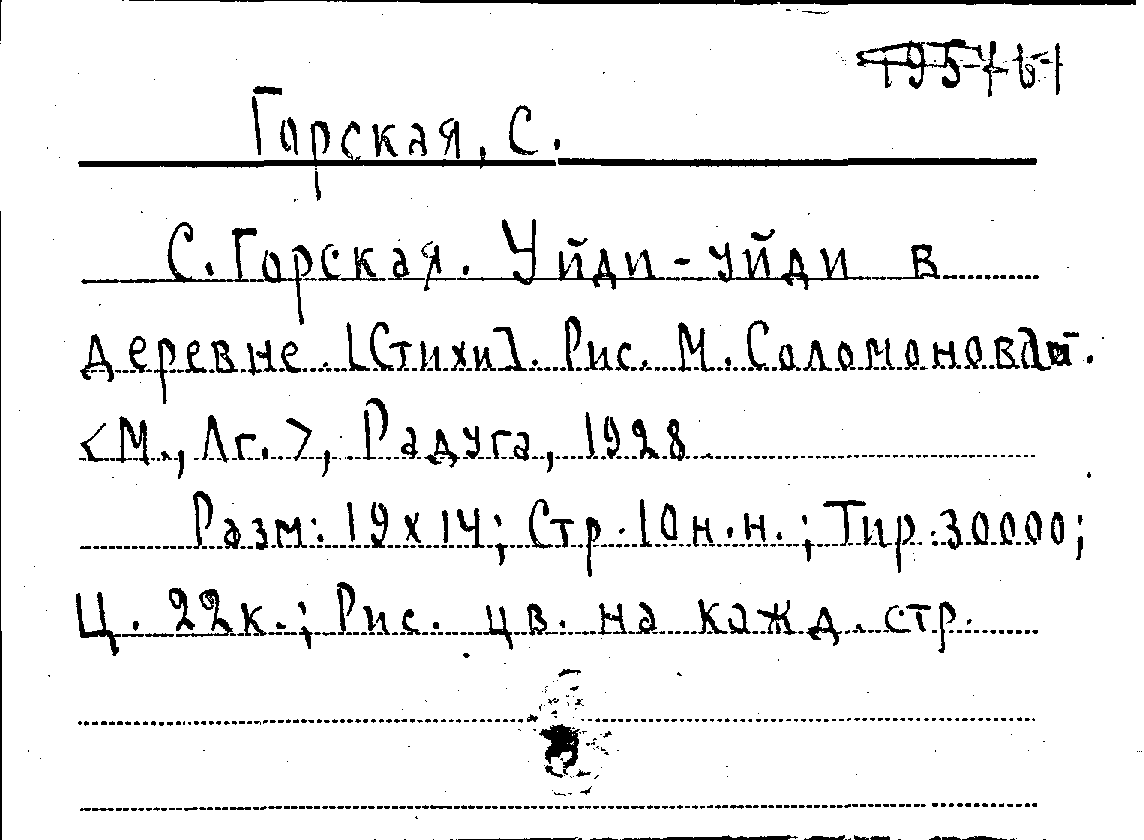 Горская, С.
С. Горская. Уйди-уйди в
деревне. [Стихи]. Рис. М. Соломонова.
<М., Лг.>, Радуга, 1928
Разм: 19х14; Стр. 10 н.н.; Тир. 30000;
Ц. 22к.; Рис. цв. на кажд. стр.